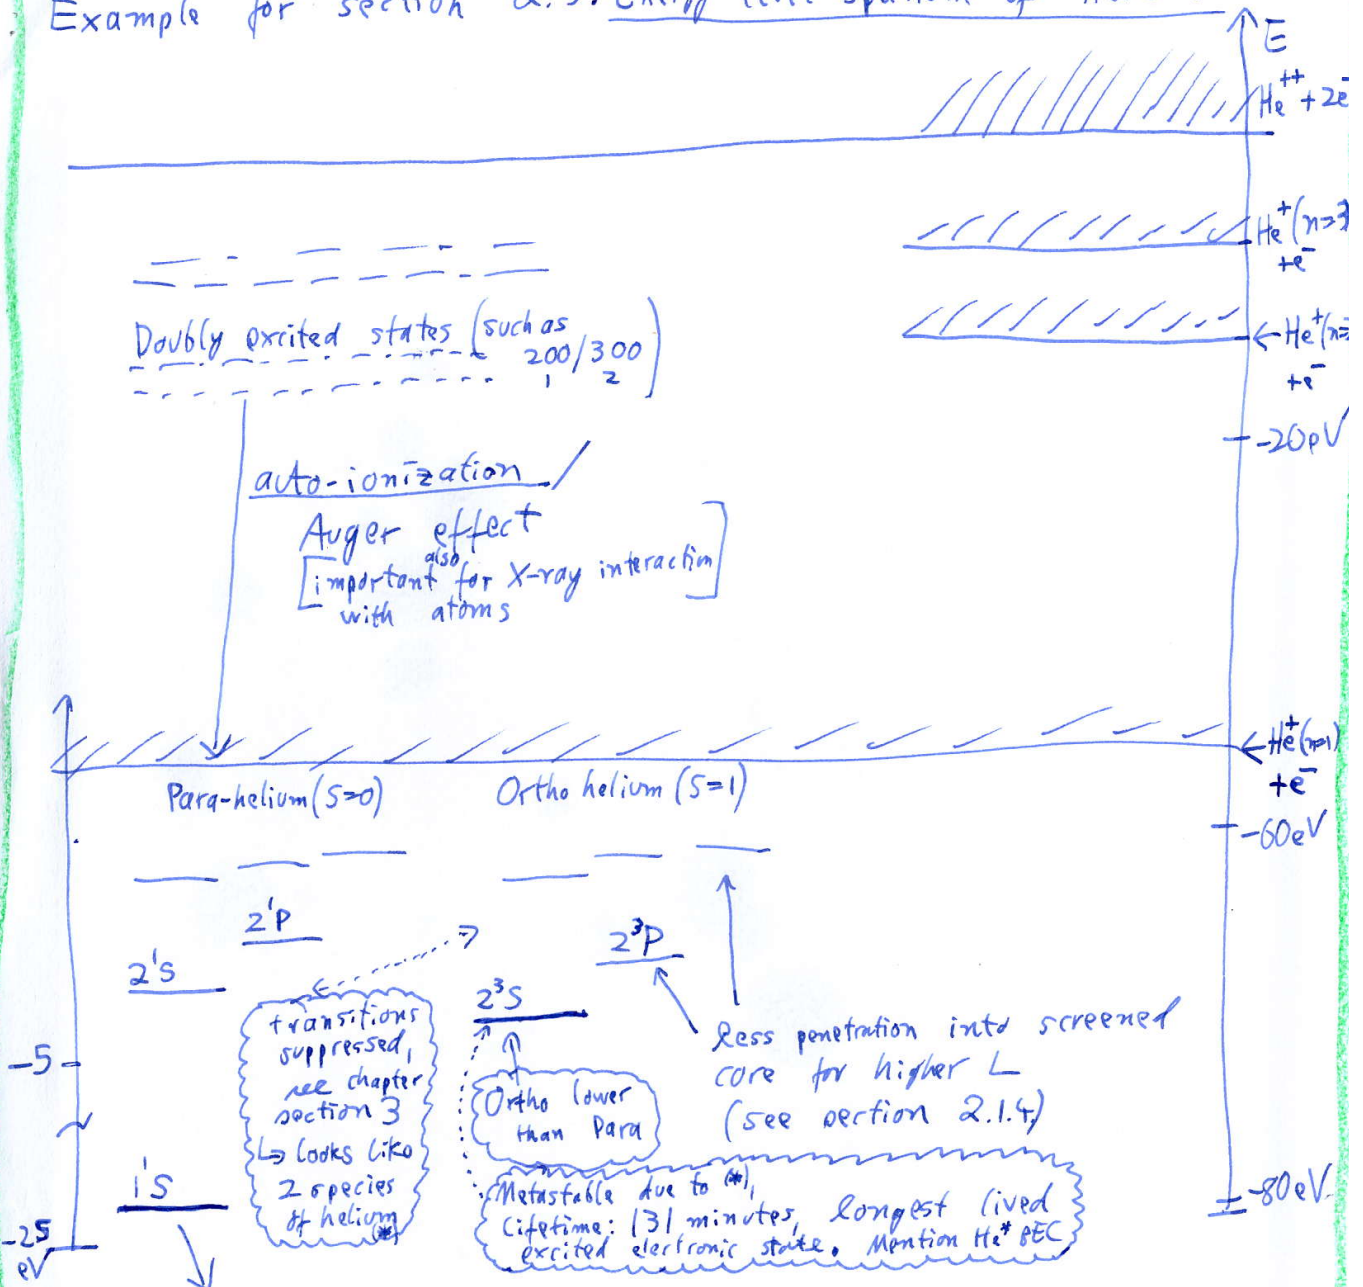 Example for section
E
He++ + 2e-
He+ (n=3)
+e-
Doubly excited states (such as
200/300
1 2
He+ (n=
+e-
-20eV
auto-ionization
Auger effect
[important also for X-ray interaction
with atoms]
He+ (n=1)
+e-
Para-helium (S=0)
Ortho helium (S=1)
-60eV
2¹P
2³P
2¹S
2³S
transitions
suppressed,
see chapter
section 3
↳ looks like
2 species
of helium
(*)
less penetration into screened
core for higher L
(see section 2.1.4)
-5
Ortho lower
than Para
1¹S
Metastable due to (*),
Lifetime: 131 minutes, longest lived
excited electronic state. Mention He* BEC
-80eV
-25
eV